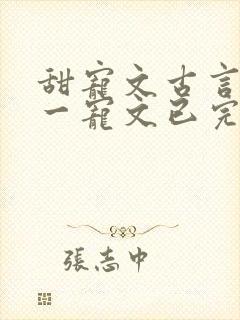 甜寵文古言
一寵文已完
張志中